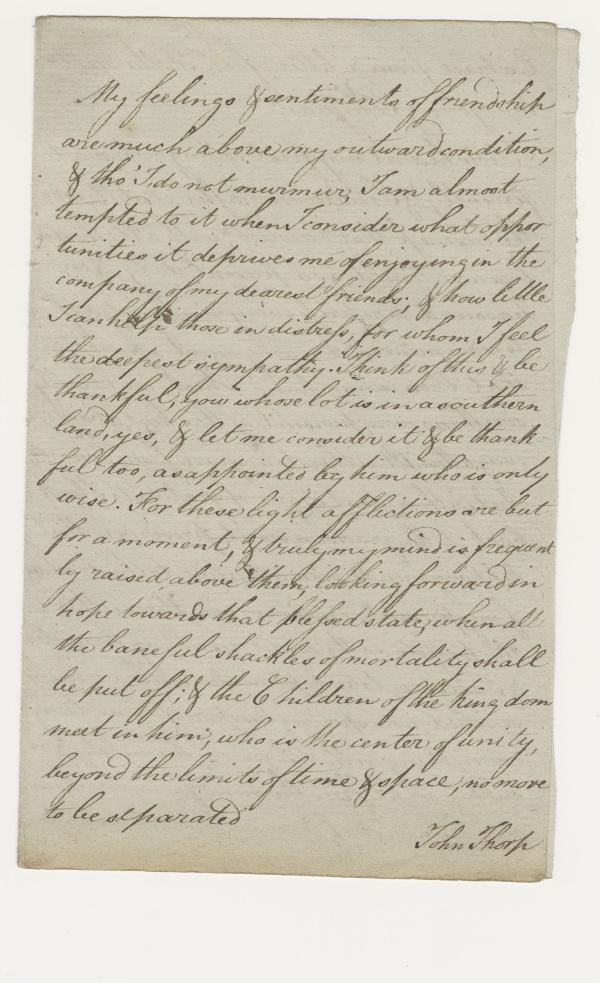 My feelings & sentiments of friendship
are much above my outward condition,
& tho' I do not murmur, I am almost
tempted to it when I consider what oppor
tunities it deprives me of enjoying in the
company of my dearest friends; & how little
I can help those in distress, for whom I feel
the deepest sympathy. Think of this & be
thankful, you whose lot is in a southern
land, yes, & let me consider it & be thank-
ful too, as appointed by him who is only
wise. For these light afflictions are but
for a moment, & truly my mind is frequent
ly raised above them, looking forward in
hope towards that blessed state, when all
the baneful shackles of mortality shall
be put off; & the Children of the kingdom
meet in him, who is the center of unity,
beyond the limits of time & space, no more
to be separated
John Thorp